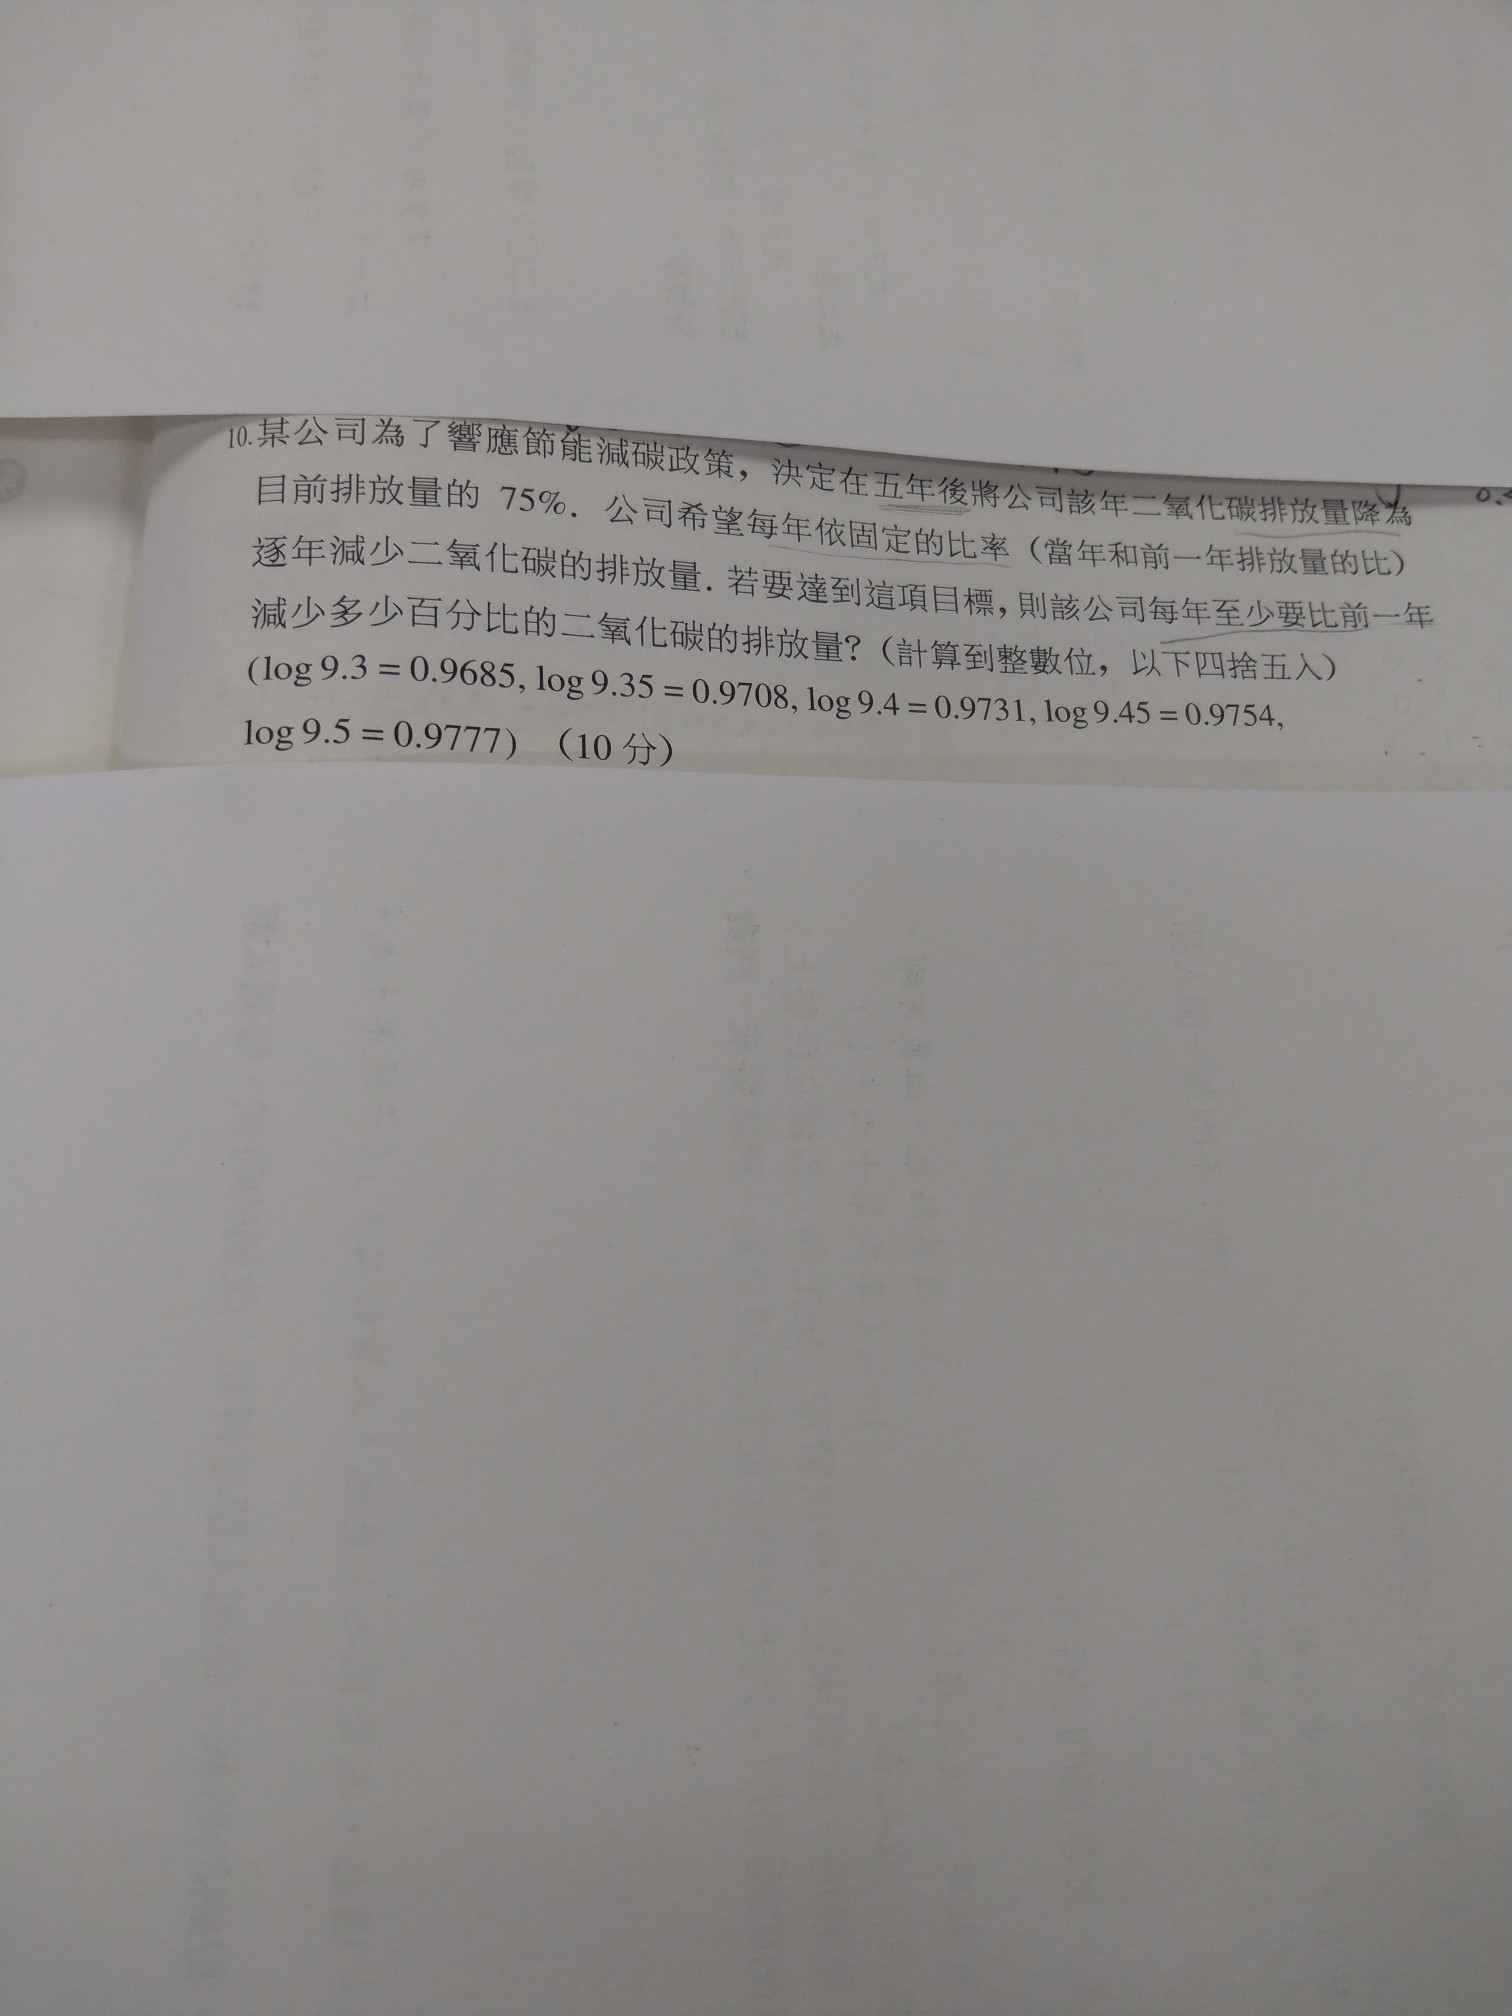 10.某公司為了響應節能減碳政策，決定在五年後將公司該年二氧化碳排放量降為
目前排放量的 75%．公司希望每年依固定的比率（當年和前一年排放量的比）
逐年減少二氧化碳的排放量．若要達到這項目標，則該公司每年至少要比前一年
減少多少百分比的二氧化碳的排放量?（計算到整數位，以下四捨五入）
(log 9.3 = 0.9685, log 9.35 = 0.9708, log 9.4 = 0.9731, log 9.45 = 0.9754,
log 9.5 = 0.9777) （10 分）